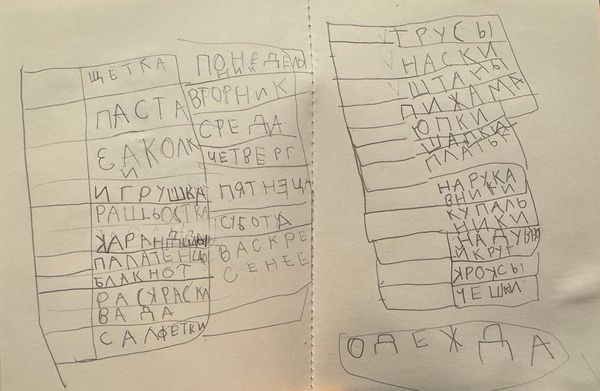 ЩЁТКА
ПАСТА
ЗАКОЛК
Й
ИГРУШКА
РАЩЬОСТКА
КАРАНДДЫ
ПАЛАТЕНЦО
БЛАКНОТ
РАСКРАСКА
ВАДА
САЛФЕТКИ
ПОНЕДЕЛЬ
НИК
ВТОРНИК
СРЕДА
ЧЕТВЕРГ
ПЯТНЕЦА
СУБОТА
ВАСКРЕ
СЕНЕЕ
ТРУСЫ
НАСКИ
ШТАНЫ
ПИЖАМА
ЮПКИ
ШАПКА
ПЛАТЬЕ
НАРУКА
ВНИКИ
КУПАЛЬ
НИКИ
НАДУВНО
Й КРУГ
КРОКСЫ
ЧЕШКИ
ОДЕЖДА